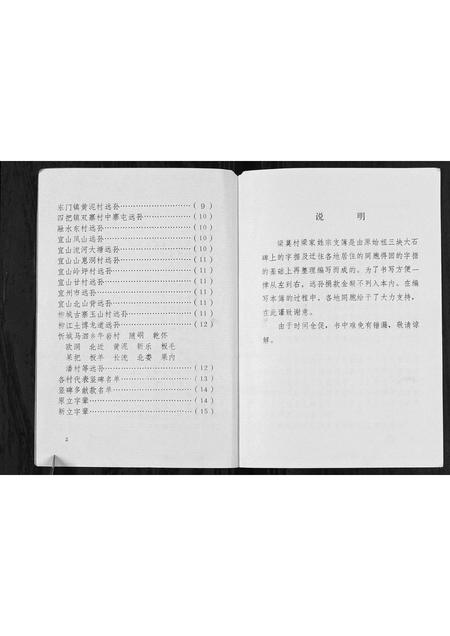 东门镇黄泥村远孙……………………(9)
四把镇双寨村中寨屯远孙……………(10)
融水东村远孙…………………………(10)
宜山凤山远孙…………………………(10)
宜山流河大塘远孙……………………(10)
宜山山惠洞村远孙……………………(11)
宜山岭坪村远孙………………………(11)
宜山甘村远孙…………………………(11)
宜州市远孙……………………………(11)
宜山北山背远孙………………………(11)
柳城古寨玉山村远孙…………………(11)
柳江土博龙道远孙……………………(12)
忻城马泗乡牛岩村 随峒 乾怀
欧洞 北近 黄泥 新乐 板毛
果把 板羊 长洗 北娄 果内
潘村等远孙……………………………(12)
各村代表竖碑名单……………………(13)
竖碑多献款名单………………………(14)
原立字辈………………………………(14)
新立字辈………………………………(15)
2
说 明
梁莫村梁家姓宗支簿是由原始祖三块大石
碑上的字据及迁往各地居住的同胞得回的字据
的基础上再整理编写而成的。为了书写方便一
律从左到右,远孙捐款金额不列入本内。在编
写本簿的过程中,各地同胞给予了大力支持,
在此谨致谢意。
由于时间仓促,书中难免有错漏,敬请谅
解。